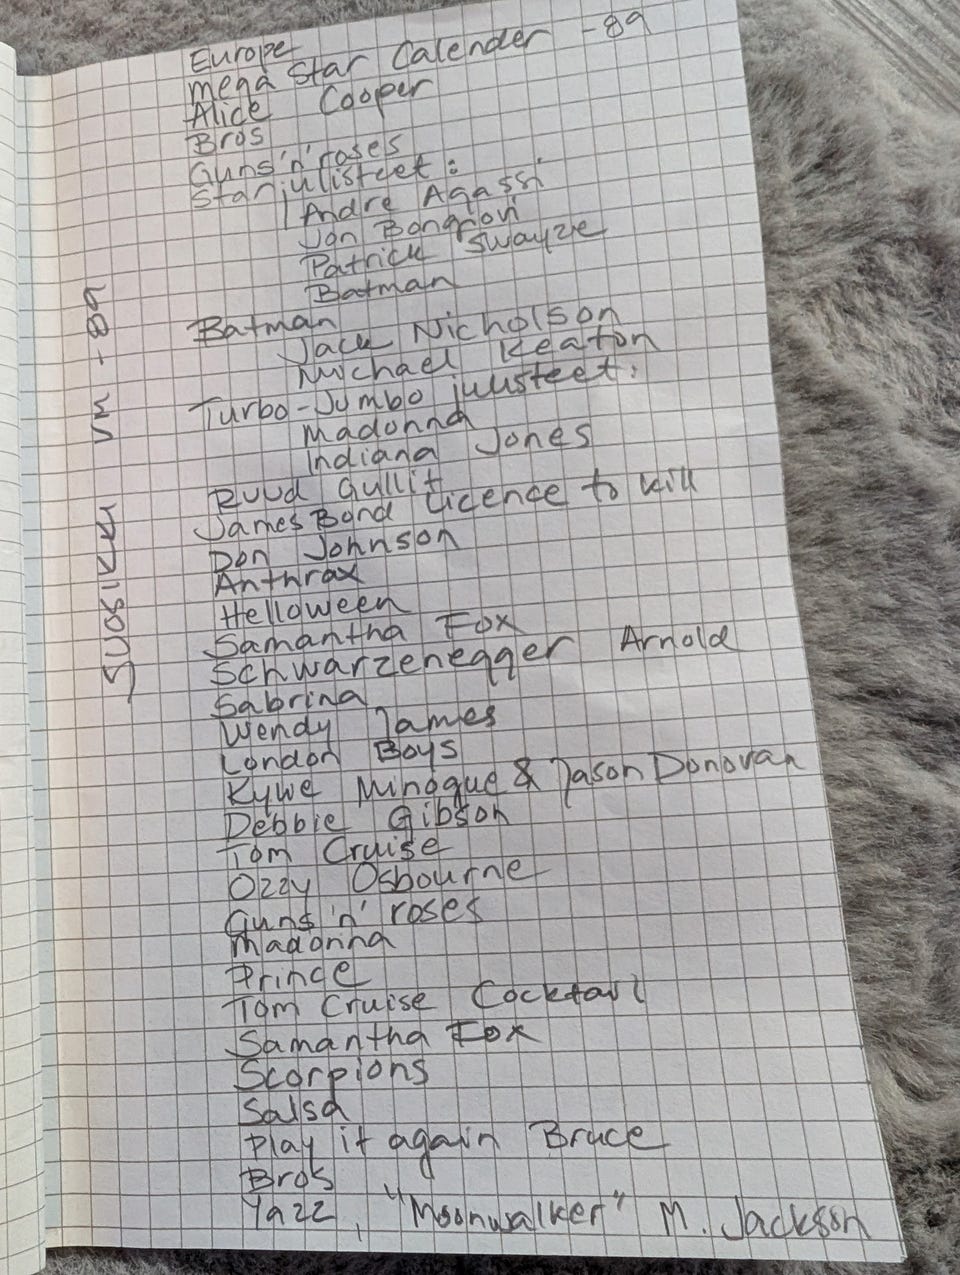 SUOSIKKI VM -89
Europe
Mega Star Calender -89
Alice Cooper
Bros
Guns 'n' roses
Starjulisteet:
Andre Agassi
Jon Bongiovi
Patrick Swayze
Batman
Batman
Jack Nicholson
Michael Keaton
Turbo-Jumbo julisteet:
Madonna
Indiana Jones
Ruud Gullit
James Bond Licence to kill
Don Johnson
Anthrax
Helloween
Samantha Fox
Schwarzenegger Arnold
Sabrina
Wendy James
London Boys
Kywe Minogue & Jason Donovan
Debbie Gibson
Tom Cruise
Ozzy Osbourne
Guns 'n' roses
Madonna
Prince
Tom Cruise Cocktail
Samantha Fox
Scorpions
Salsa
Play it again Bruce
Bros
Yazz, "Moonwalker" M. Jackson